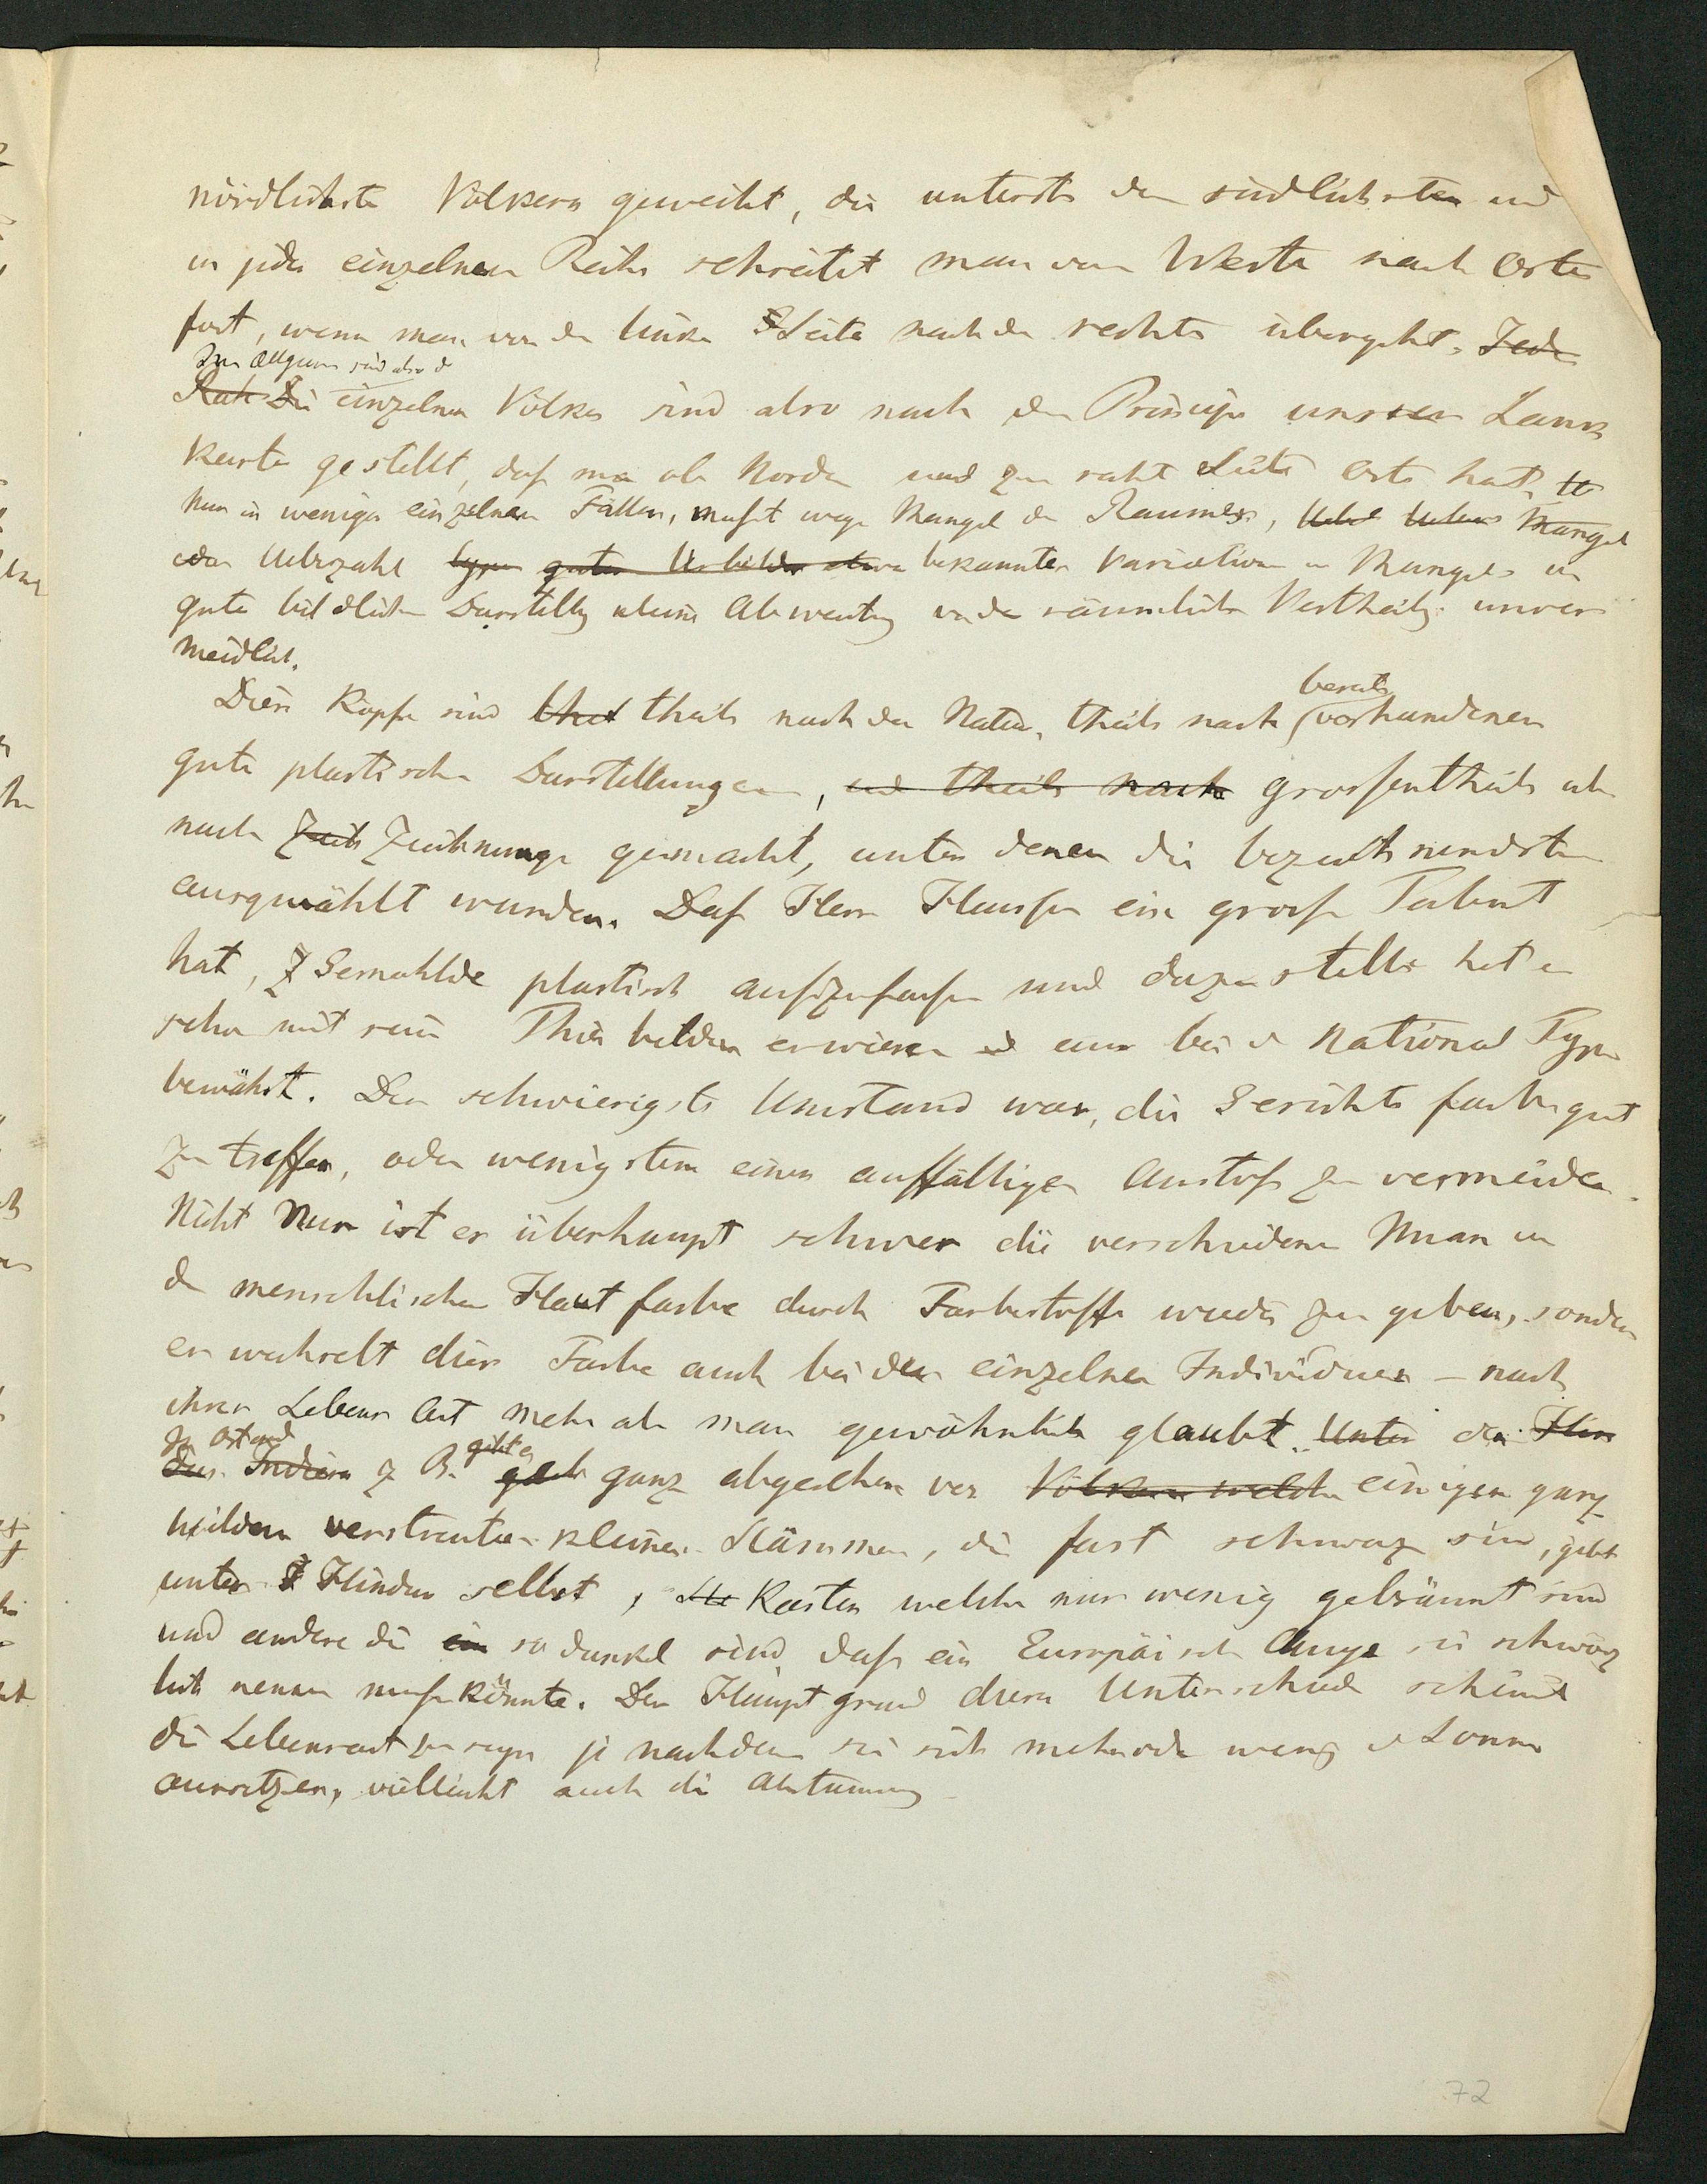 nördlichste Völkern geweiht, die unterste den südlichsten und
in jeder einzelnen Reihe schreitet man von Westen nach Osten
fort, wenn man von der linken Seite nach der rechten übergeht. Jede
Im Allgem sind also d
Reih Die einzelnen Völker sind also nach dem Princip unserer Land
karten gestellt, daß man oben Norden und zur recht Seite Osten hat,
Nur in wenigen einzelnen Fällen, meist wegen Mangel des Raumes, Mangel
oder Ueberzahl guter Vorbilder etwa bekannter Variationen u Mangels an
guten bildlichen Darstellg kleine Abweichung in der räumlichen Vertheilg unver
meidlich.
bereits
Diese Köpfe sind theils nach der Natur, theils nach vorhandenen
guten plastischen Darstellungen, und theils nach grossentheils aber
nach Zeich Zeichnungen gemacht, unter denen die bezeichnendsten
ausgewählt wurden. Daß Herr Heuser ein grosses Talent
hat, Z Gemahlde plastisch aufzufassen und darzustellen hat er
schon mit seinen Thierbildern erwiesen und bei d National Typen
bewährt. Der schwierigste Umstand war, die Gesichtsfarbe gut
zu treffen, oder wenigstens einen auffälligen Anstoß zu vermeiden.
Nicht Nur ist es überhaupt schwer die verschiedenen Nuancen
der menschlichen Hautfarbe durch Farbestoffe wieder zu geben, sondern
es wechselt diese Farbe auch bei den einzelnen Individuen – nach
ihrer Lebens Art mehr als man gewöhnlich glaubt. Unter den Hin
In Ostind
gibt es
des Indiern z B. ganz abgesehen von Völkern welche einigen ganz
wilden verstreuten kleinen Stämmen, die fast schwarz sind, gibt
unter Hindus selbst, Kasten welche nur wenig gebräunt sind
und andere die ein so dunkel sind, daß ein Europäisch Auge sie schwärz
lich nennen könnte. Der Hauptgrund dieses Unterschieds scheint
die Lebensart zu seyn je nachdem sie sich mehr oder weniger d Sonne
aussetzen, vielleicht auch die Abstammung
72